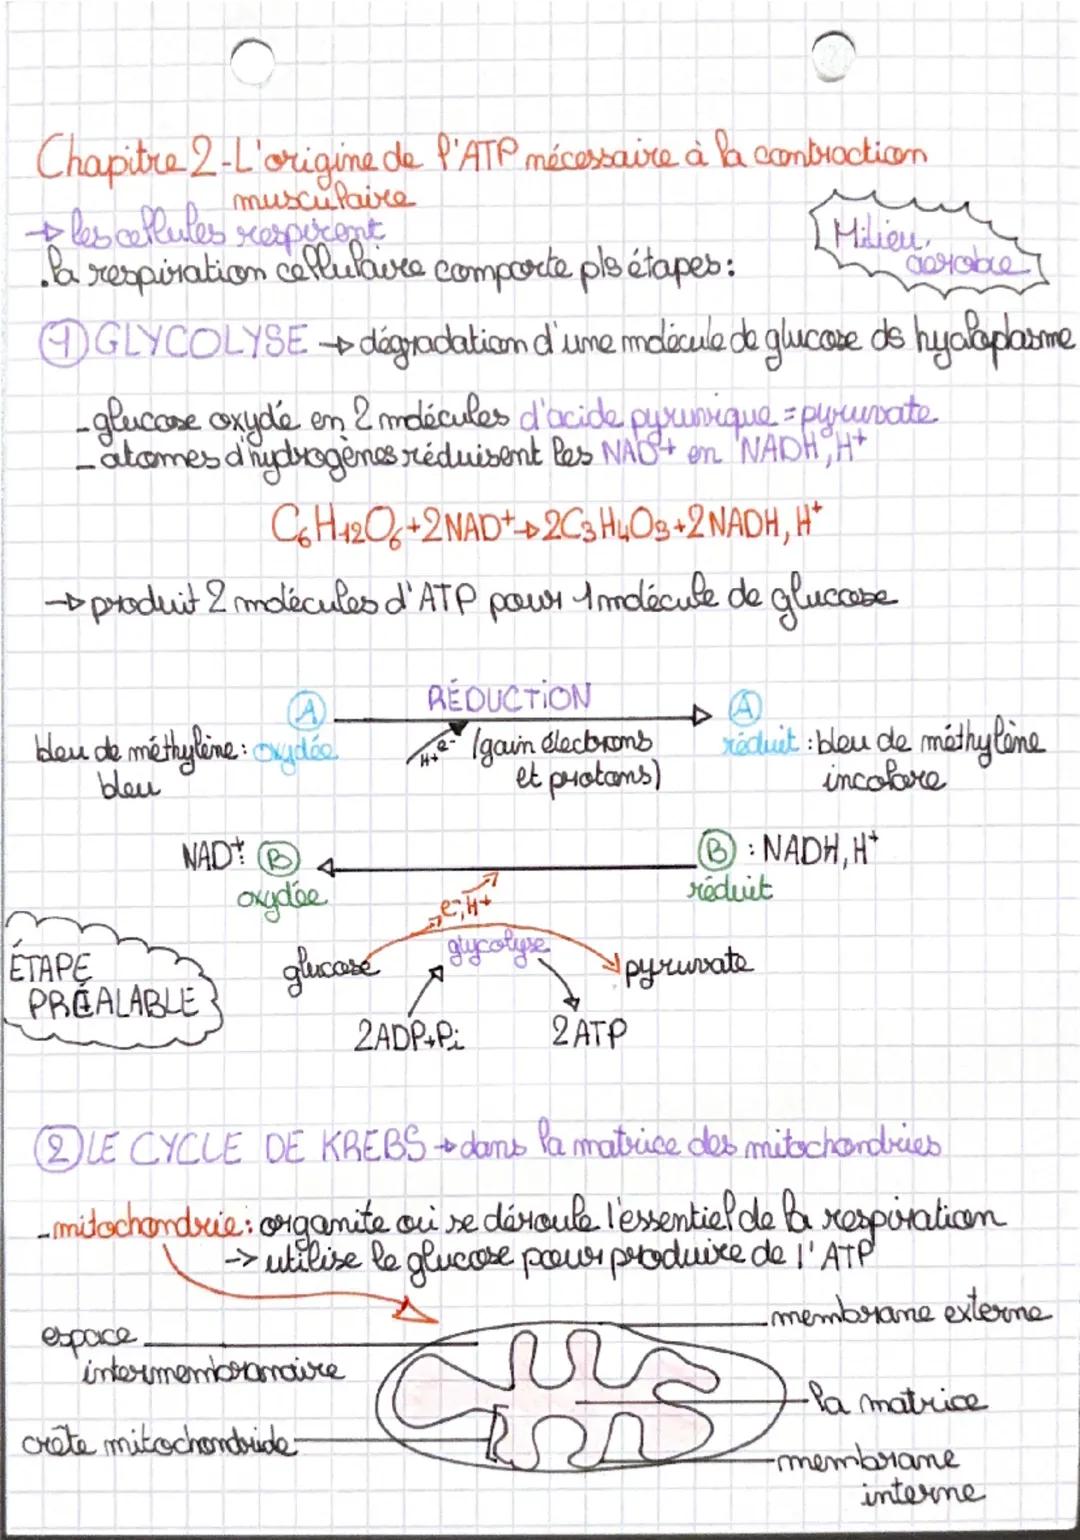 Chapitre 2-L'origine de l'ATP nécessaire à la contraction
musculaire
→ les cellules respirent
.la respiration cellulaire comporte pls étapes:
Milieu
aérobie
① GLYCOLYSE → dégradation d'une molécule de glucose ds hyaloplasme
-glucose oxydé en 2 molécules d'acide pyruvique = pyruvate
-atomes d'hydrogènes réduisent les NAD+ en NADH, H+
C6H12O6+2NAD+→2C3H4O3+2NADH, H+
→ produit 2 molécules d'ATP pour 1 molécule de glucose
A RÉDUCTION A
bleu de méthylène: oxydée H+ e- (gain électrons réduit: bleu de méthylène
bleu et protons) incolore
NAD+: B B : NADH, H+
oxydée réduit
e-, H+
ÉTAPE
PRÉALABLE
glucose glycolyse pyruvate
2ADP+Pi 2 ATP
② LE CYCLE DE KREBS → dans la matrice des mitochondries
-mitochondrie: organite où se déroule l'essentiel de la respiration
-> utilise le glucose pour produire de l'ATP
membrane externe
espace
intermembranaire
la matrice
crête mitochondride
membrane
interne